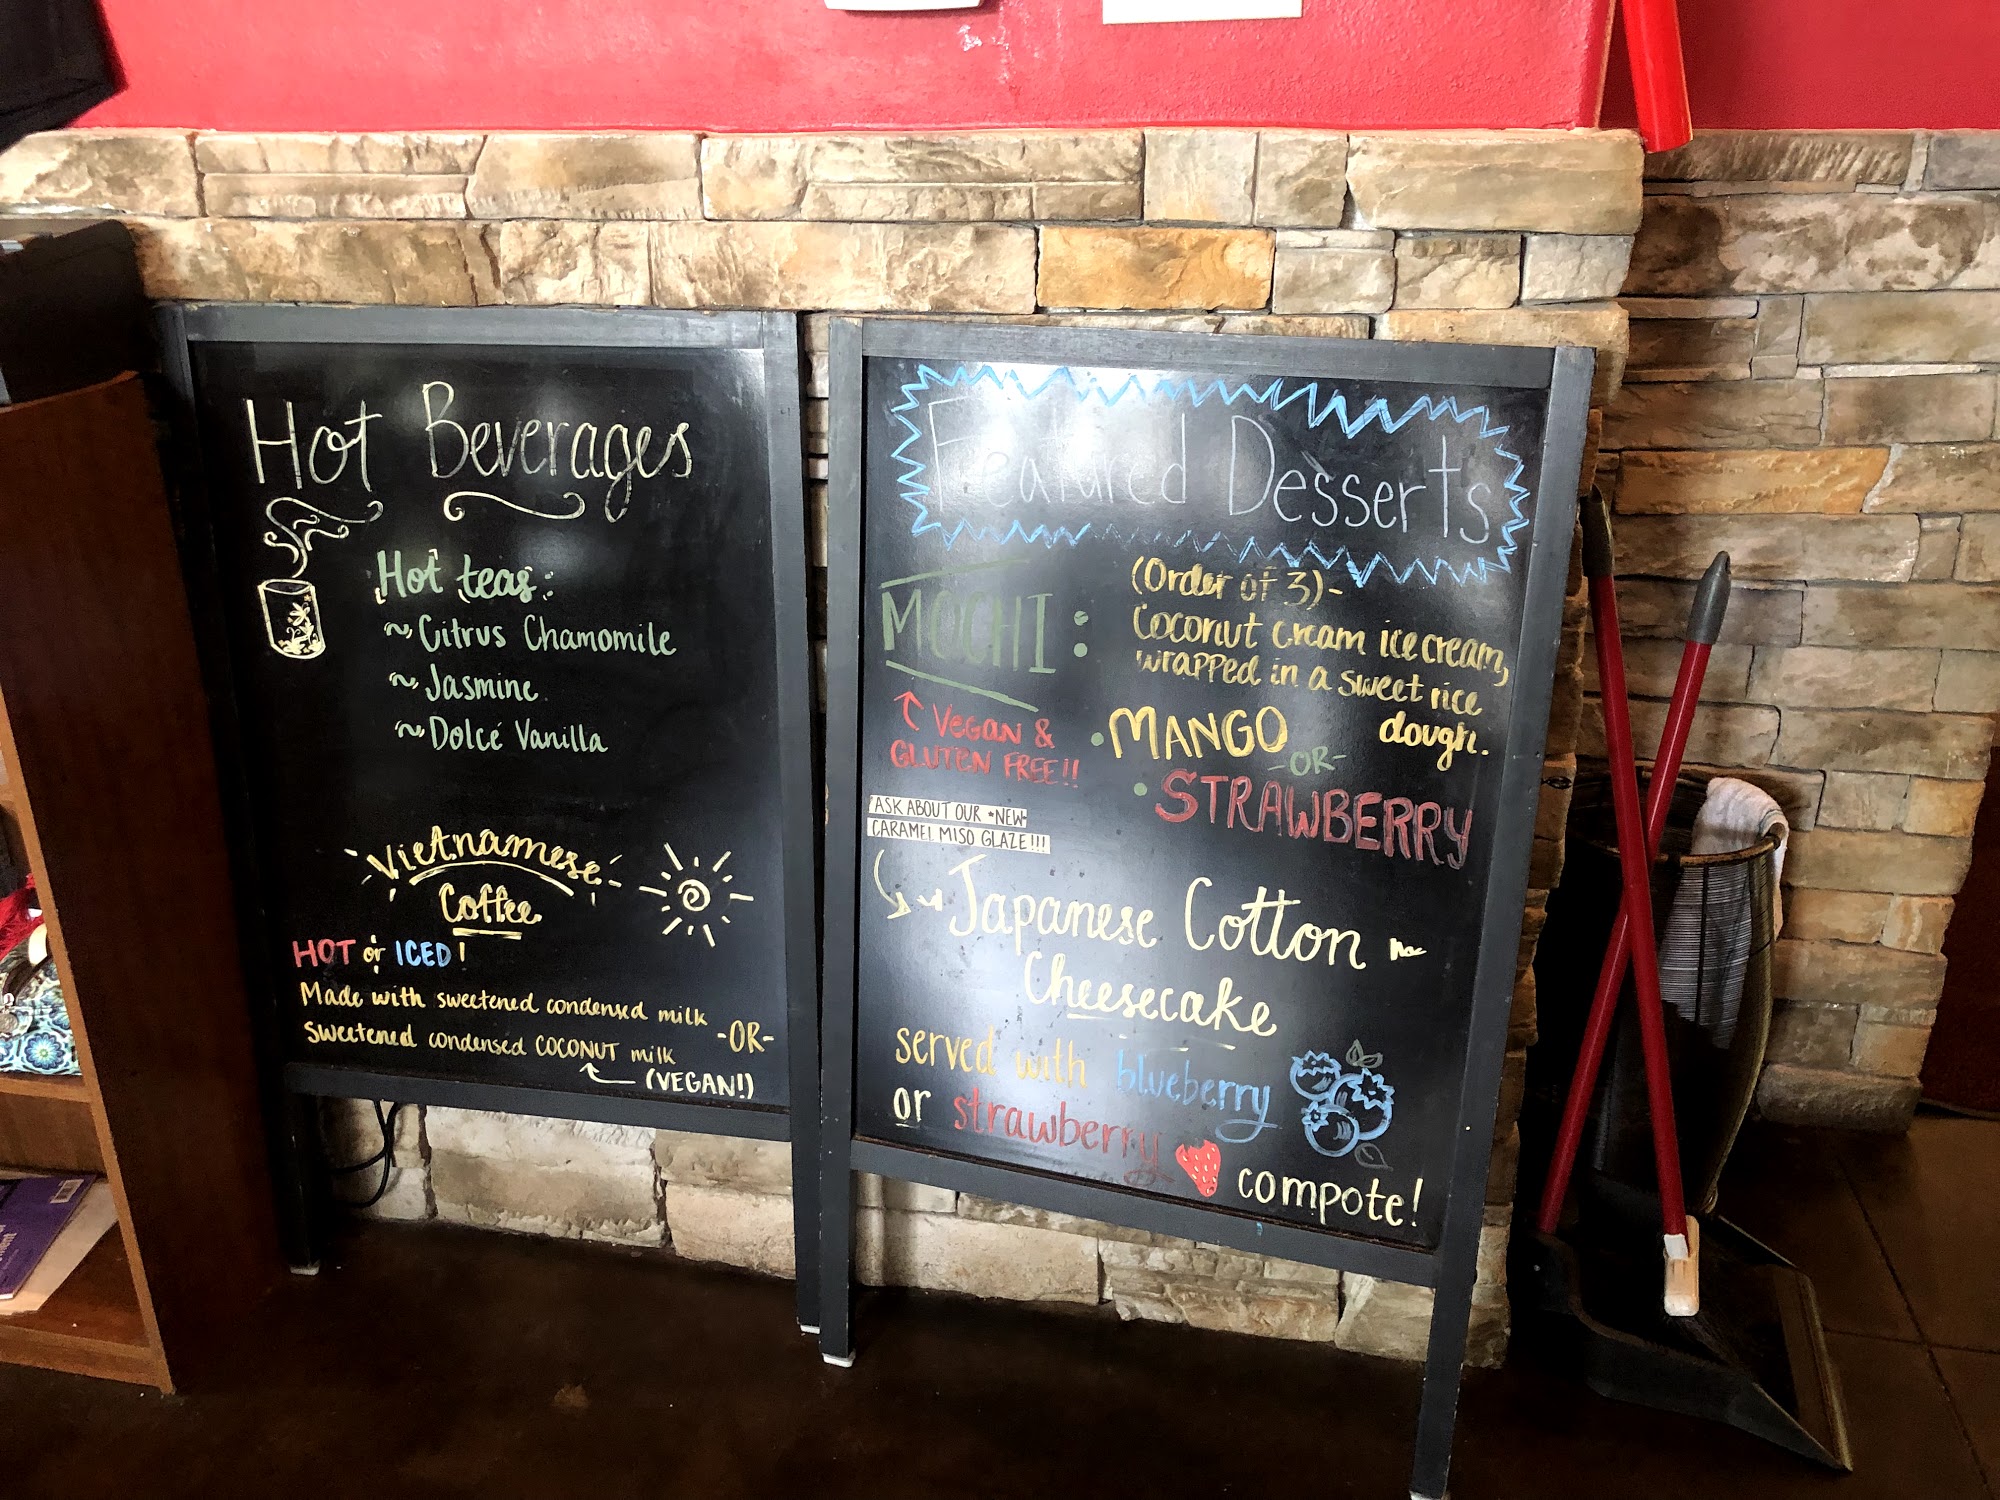 Hot Beverages
Hot teas:
~ Citrus Chamomile
~ Jasmine
~ Dolcé Vanilla
Vietnamese
Coffee
HOT or ICED!
Made with sweetened condensed milk
-OR-
sweetened condensed COCONUT milk
(VEGAN!)
Featured Desserts
MOCHI:
(Order of 3)-
Coconut cream ice cream,
wrapped in a sweet rice
dough.
↑ VEGAN &
GLUTEN FREE!!
• MANGO
-OR-
• STRAWBERRY
*ASK ABOUT OUR *NEW*
CARAMEL MISO GLAZE!!!
Japanese Cotton
Cheesecake
served with blueberry
or strawberry
compote!